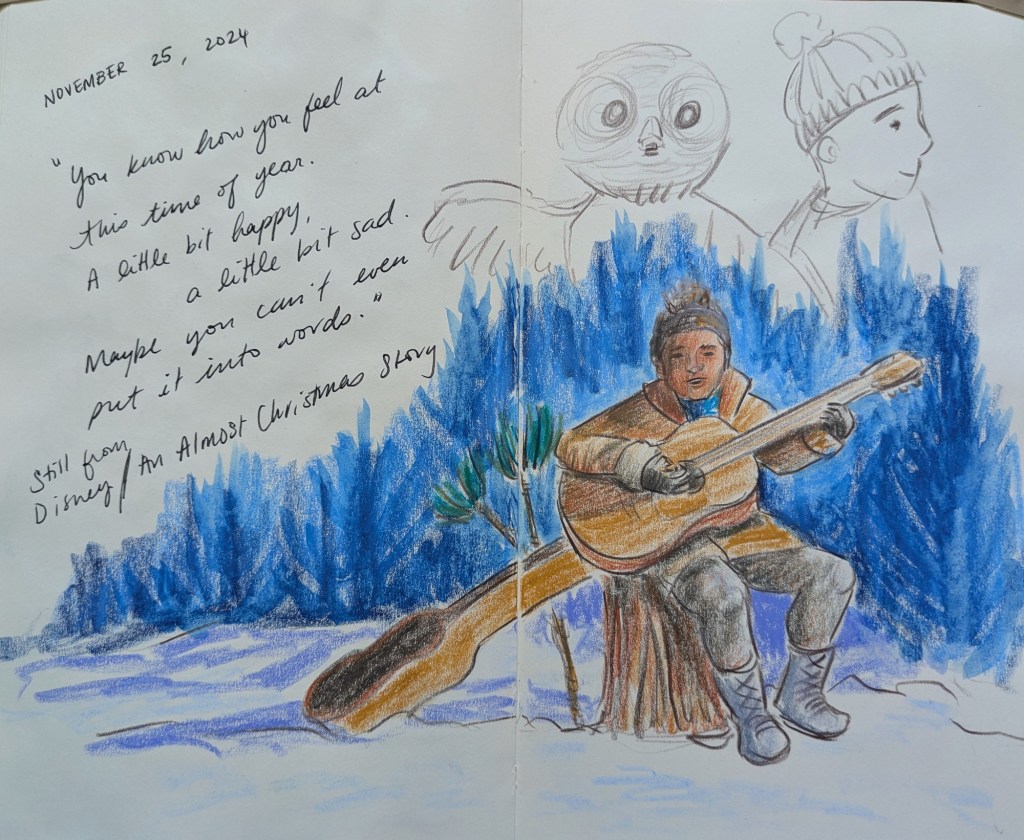 NOVEMBER 25, 2024
"You know how you feel at
this time of year.
A little bit happy,
a little bit sad.
Maybe you can't even
put it into words."
Still from
Disney / An Almost Christmas Story